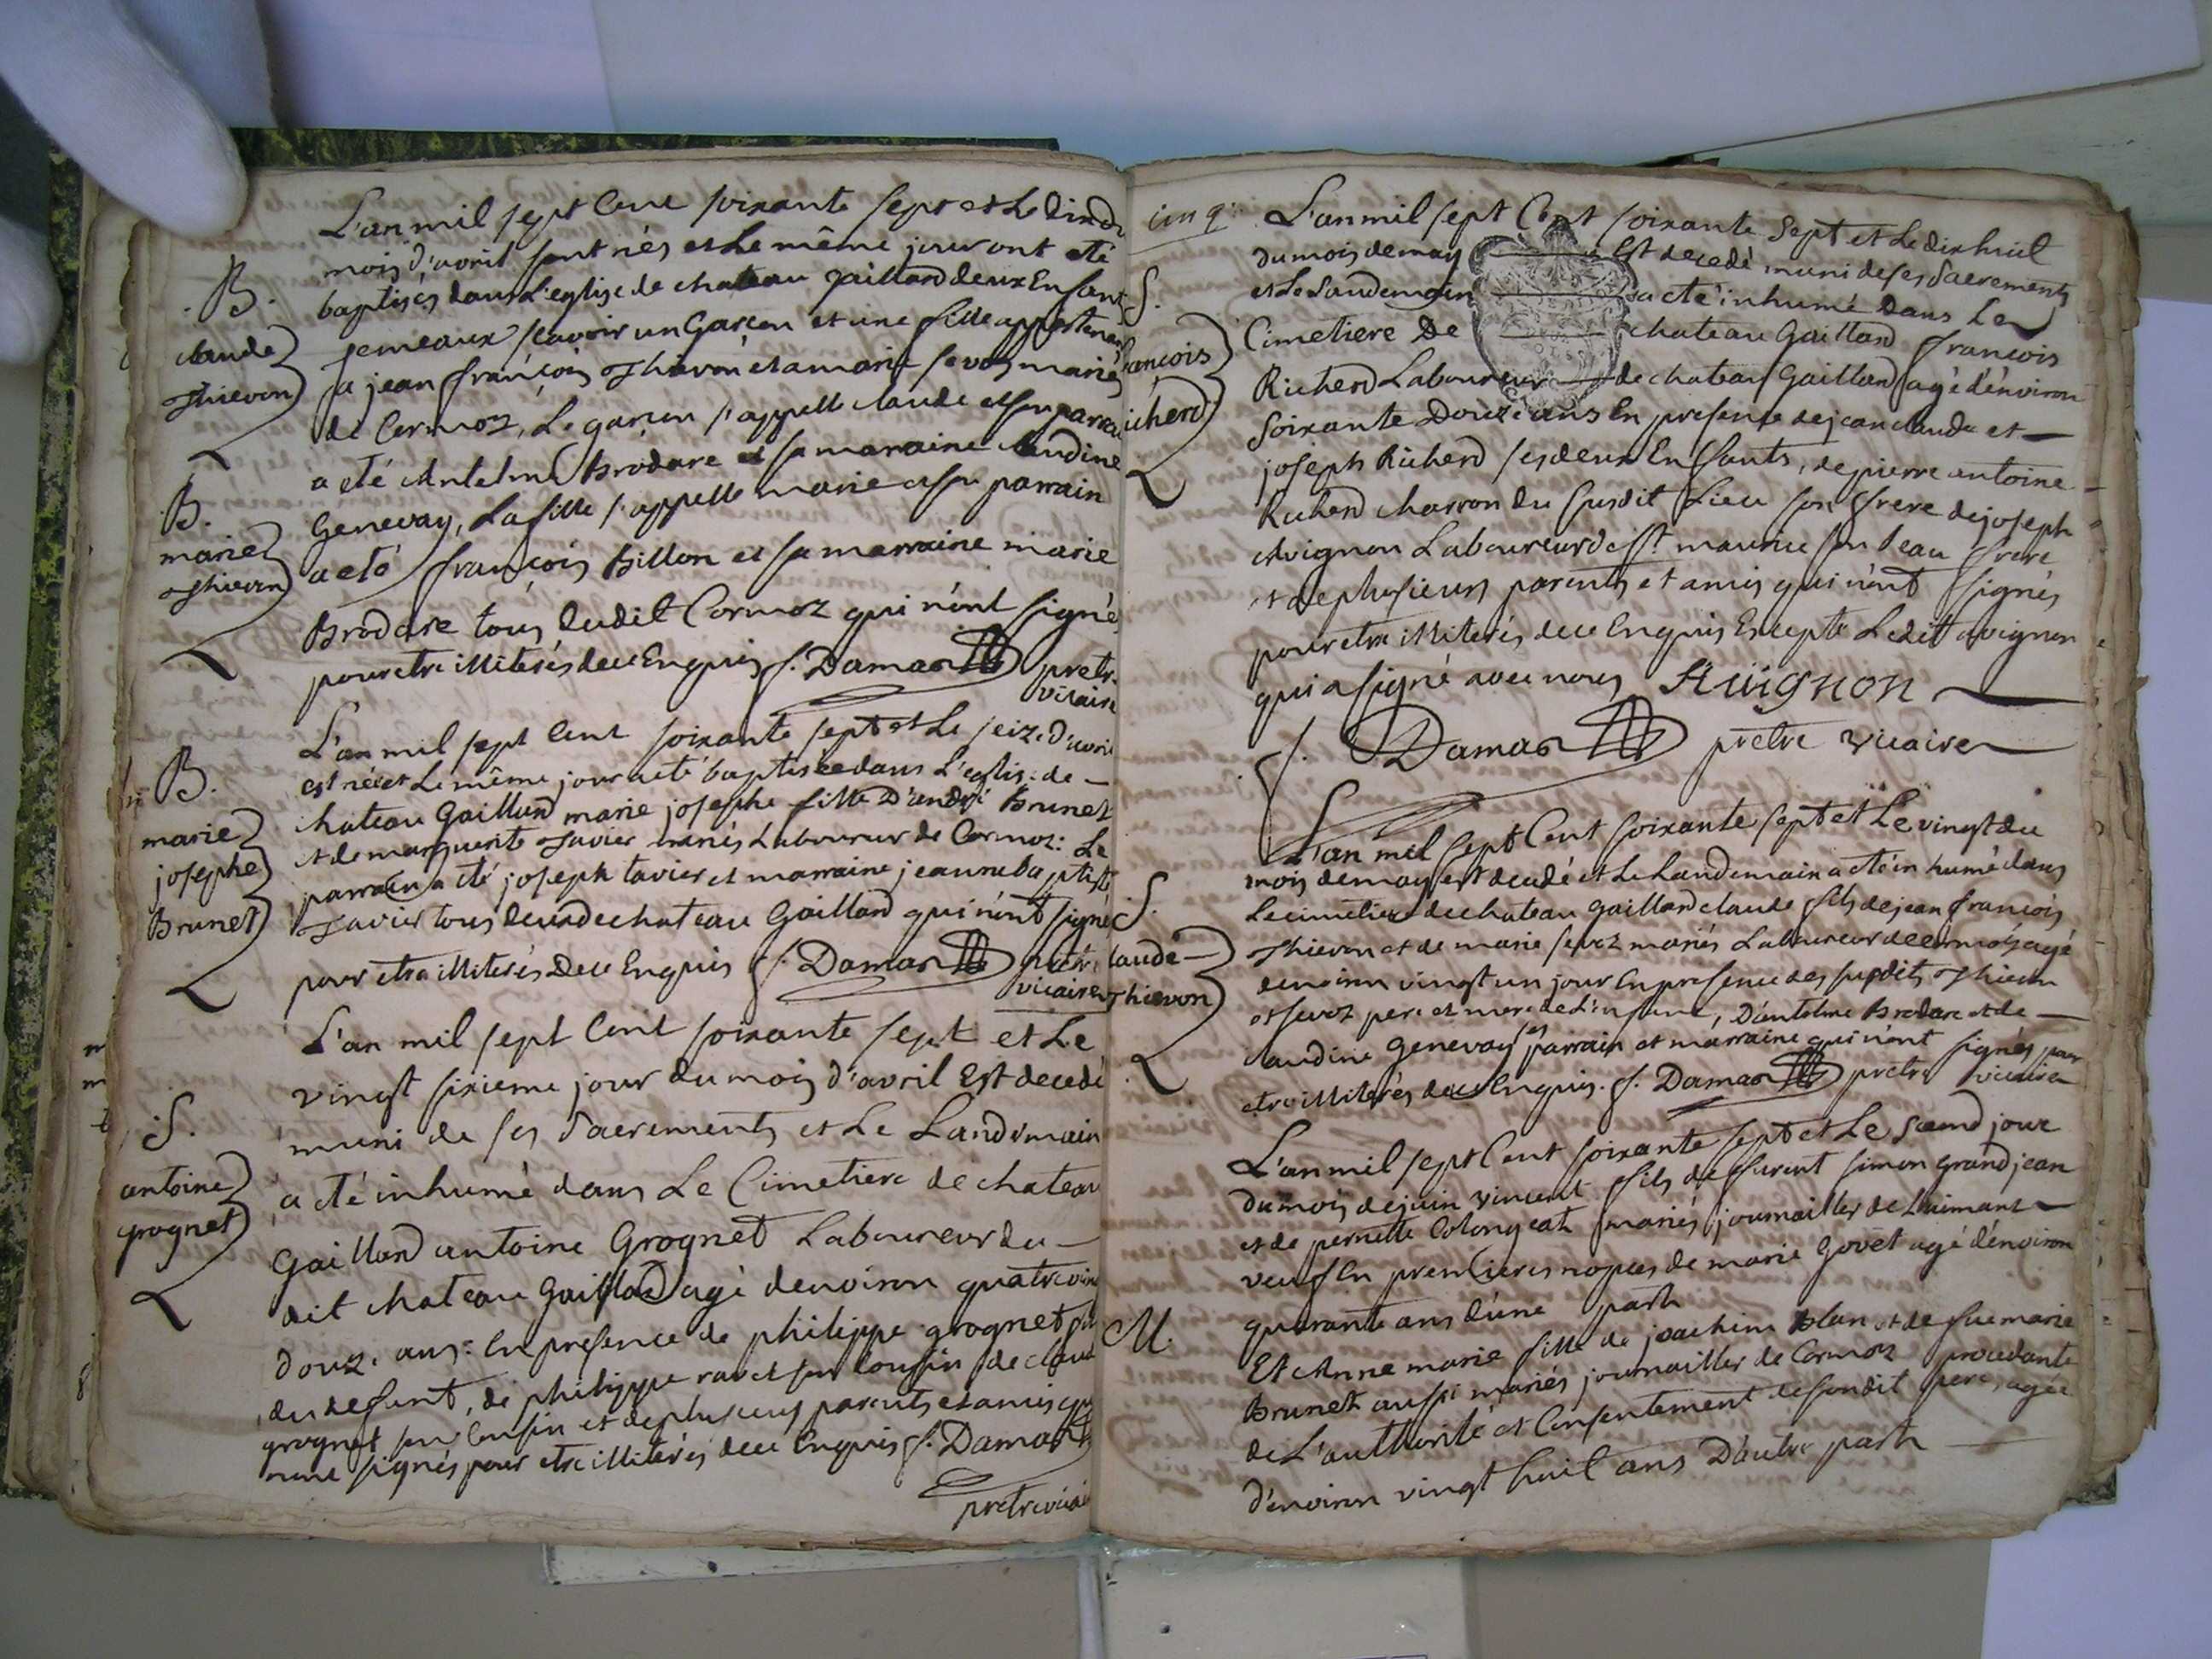 L'an mil sept Cent soixante sept et le
mois d'avril sont nés et Le même jour ont eté
baptisés dans L'eglise de chateau gaillard deux Enfant
B.
claude
Thievon
jemeaux scavoir un Garcon et une fille appartenan
a jean françois Thievon et a marie sevoz mariés
de Cormoz, Le garcon s'appelle claude et son parrai
a eté Antelme Brodare et sa maraine claudine
B.
marie
Thievon
Genevay, La fille s'appelle marie et son parrain
a eté françois Billon et sa marraine marie
Brodare tous dudit Cormoz qui n'ont signé
pour etre illiterés de ce Enquis f. Damas pretre
vicaire
L'an mil sept Cent soixante sept et Le seize d'avri
est née et Le même jour a eté baptisée dans L'eglise de
B.
marie
josephe
Brunet
chateau Gaillard marie josephe fille D'andré Brunet
et de marguerite Tavier mariés Laboureur de Cormoz: Le
parrain a eté joseph tavier et marraine jeanne baptiste
Tavier tous deux de chateau Gaillard qui n'ont signé
pour etre illiterés De ce Enquis f. Damas pretre
vicaire
L'an mil sept Cent soixante sept et Le
vingt sixieme jour du mois d'avril Est decedé
muni de ses Sacrements et Le Landemain
S.
antoine
grognet
a eté inhumé dans Le Cimetiere de chateau
Gaillard antoine Grognet Laboureur du
dit chateau Gaillard agé denviron quatrevin
douze ans: En presence de philippe grognet fil
du defunt, de philippe ravet son Cousin de claud
grognet son Cousin et de plusieurs parents et amis qui
nont signés pour etre illiterés de ce Enquis f. Damas
pretre vicai
cinq
L'an mil sept Cent soixante Sept et Le dix huit
du mois de may Est decedé muni de ses Sacrements
et Le Landemain a eté inhumé Dans Le
S.
francois
Richerd
Cimetiere De chateau Gaillard francois
Richerd Laboureur de chateau Gaillard agé d'environ
Soixante Douze ans En presence de jean claude et
joseph Richerd ses deux Enfants, de pierre antoine
Richerd charron du susdit Lieu son frere de joseph
Avignon Laboureur de St. maurice son beau frere
et de plusieurs parents et amis qui n'ont signés
pour etre illiterés de ce Enquis Excepté Ledit avignon
qui a signé avec nous Avignon
f. Damas prêtre vicaire
L'an mil sept Cent soixante sept et Le vingt du
mois de may est decedé et Le Landemain a eté inhumé dans
S.
claude
Thievon
Le cimetiere de chateau gaillard claude fils de jean francois
Thievon et de marie sevoz mariés Laboureur de cormoz agé
denviron vingt un jour En presence des susdits Thievon
et sevoz pere et mere de L'enfant, D'antelme Brodare et de
claudine Genevay ses parrain et marraine qui n'ont signés pour
etre illiterés de ce Enquis. f. Damas pretre vicaire
L'an mil sept Cent soixante sept et Le second jour
du mois de juin vincent fils de furent simon grandjean
et de pernette Colongeat mariés journallier de Laimant
veuf En premieres nopces de marie Govet agé d'environ
quarante ans d'une part
M.
Et Anne marie fille de joachim Blan et de fue marie
Brunet aussi mariés journallier de Cormoz procedante
de L'authorité et Consentement desondit pere, agée
d'environ vingt huit ans D'autre part